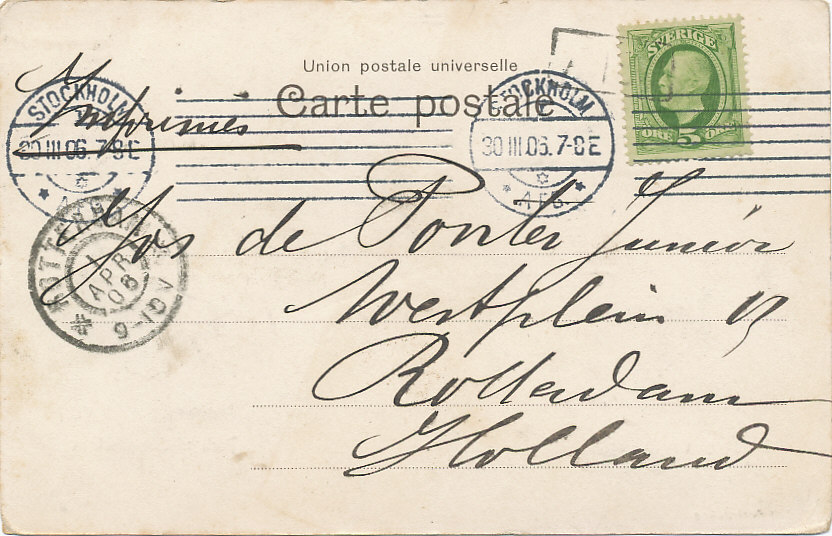 Union postale universelle
Carte postale
SVERIGE
ÖRE 5 ÖRE
Imprimés
STOCKHOLM
30 III 06. 7-8 E
STOCKHOLM
30 III 06. 7-8 E
ROTTERDAM
1
APR
06
9-10V
Jos de Ponter Junior
Westplein
Rotterdam
Holland